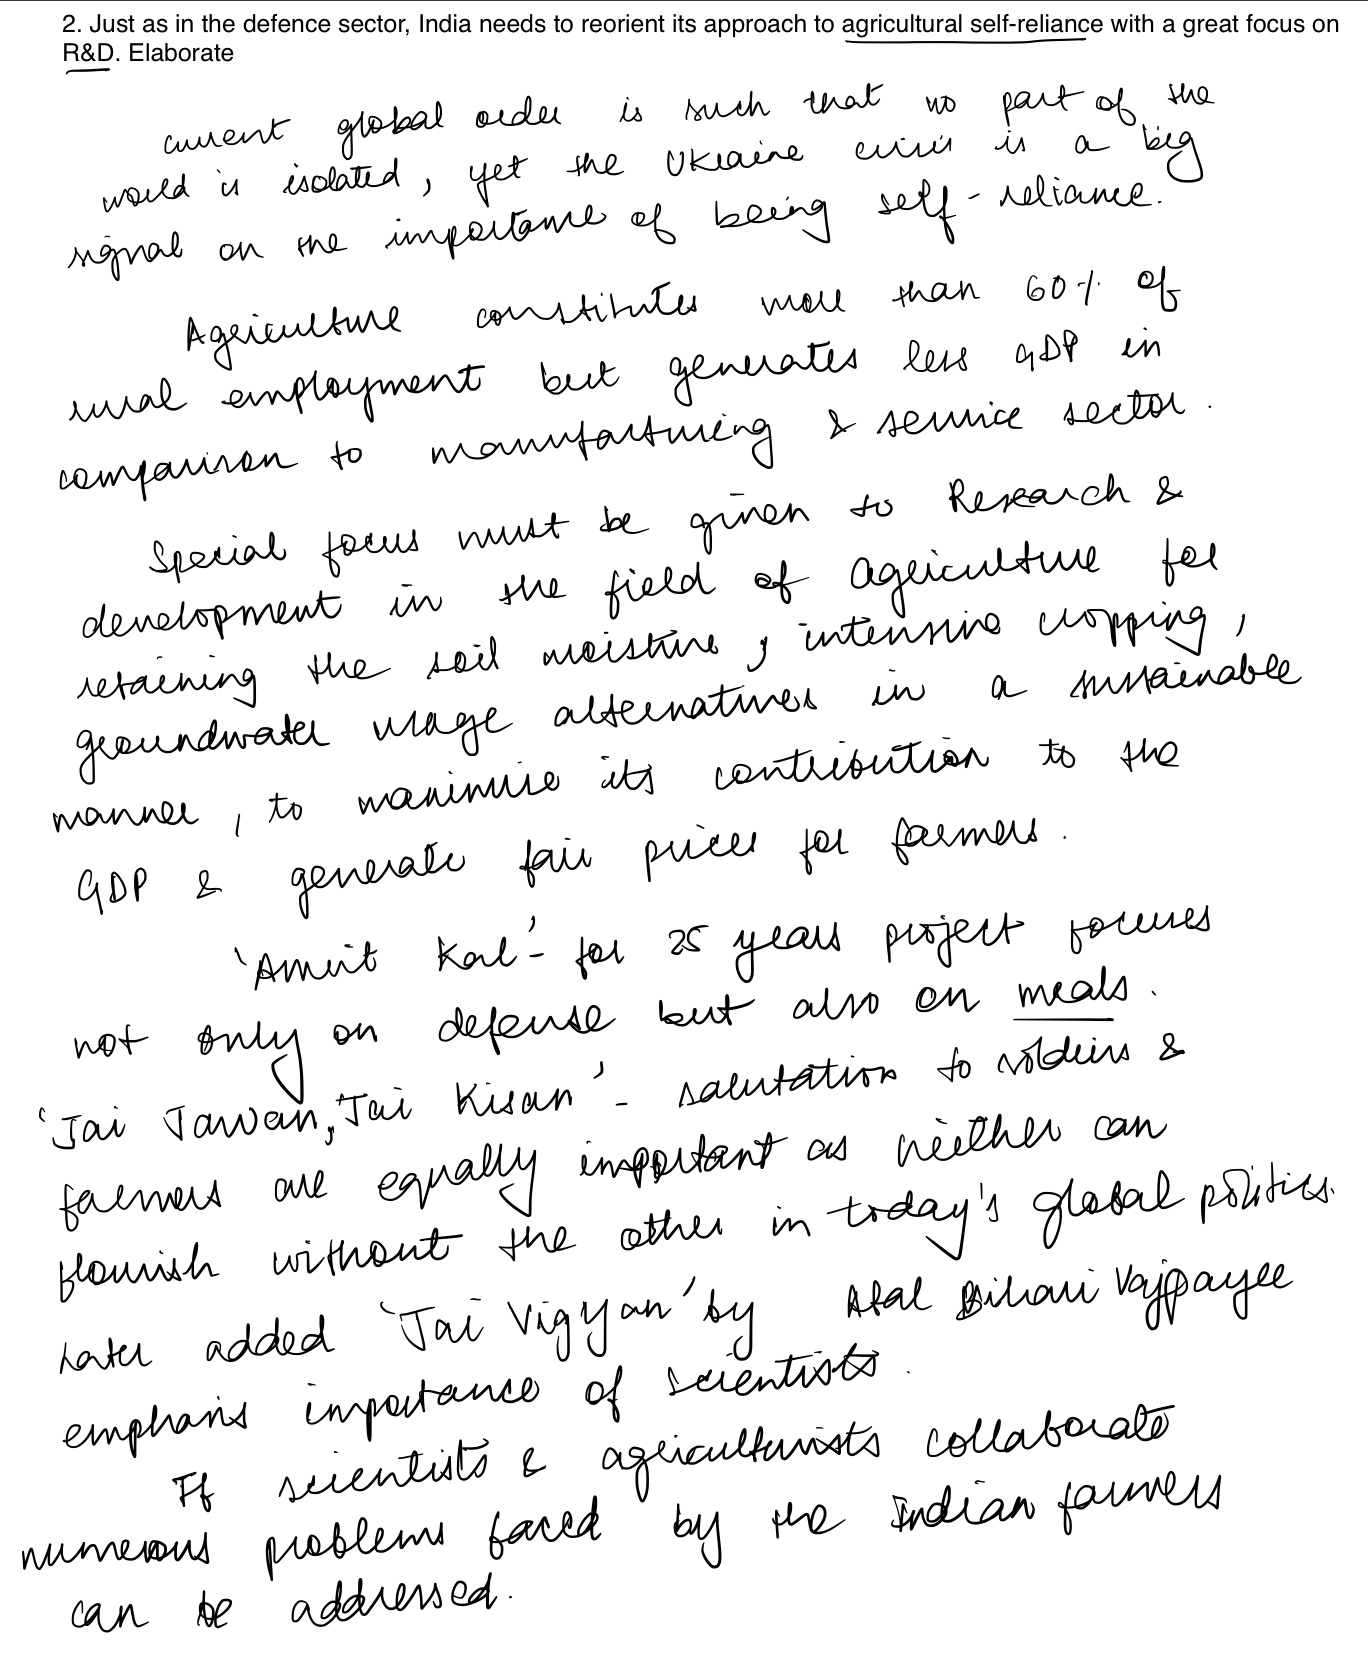 2. Just as in the defence sector, India needs to reorient its approach to agricultural self-reliance with a great focus on
R&D. Elaborate
current global order is such that no part of the
world is isolated, yet the Ukraine crisis is a big
signal on the importance of being self-reliance.
Agriculture constitutes more than 60% of
rural employment but generates less GDP in
comparison to manufacturing & service sector.
Special focus must be given to Research &
development in the field of agriculture for
retaining the soil moisture, intensive cropping,
groundwater usage alternatives in a sustainable
manner, to maximise its contribution to the
GDP & generate fair prices for farmers.
'Amrit Kal' - for 25 years project focuses
not only on defense but also on meals.
'Jai Jawan, Jai Kisan' - salutation to soldiers &
farmers are equally important as neither can
flourish without the other in today's global politics.
Later added 'Jai Vigyan' by Atal Bihari Vajpayee
emphasis importance of scientists.
If scientists & agriculturists collaborate
numerous problems faced by the Indian farmers
can be addressed.